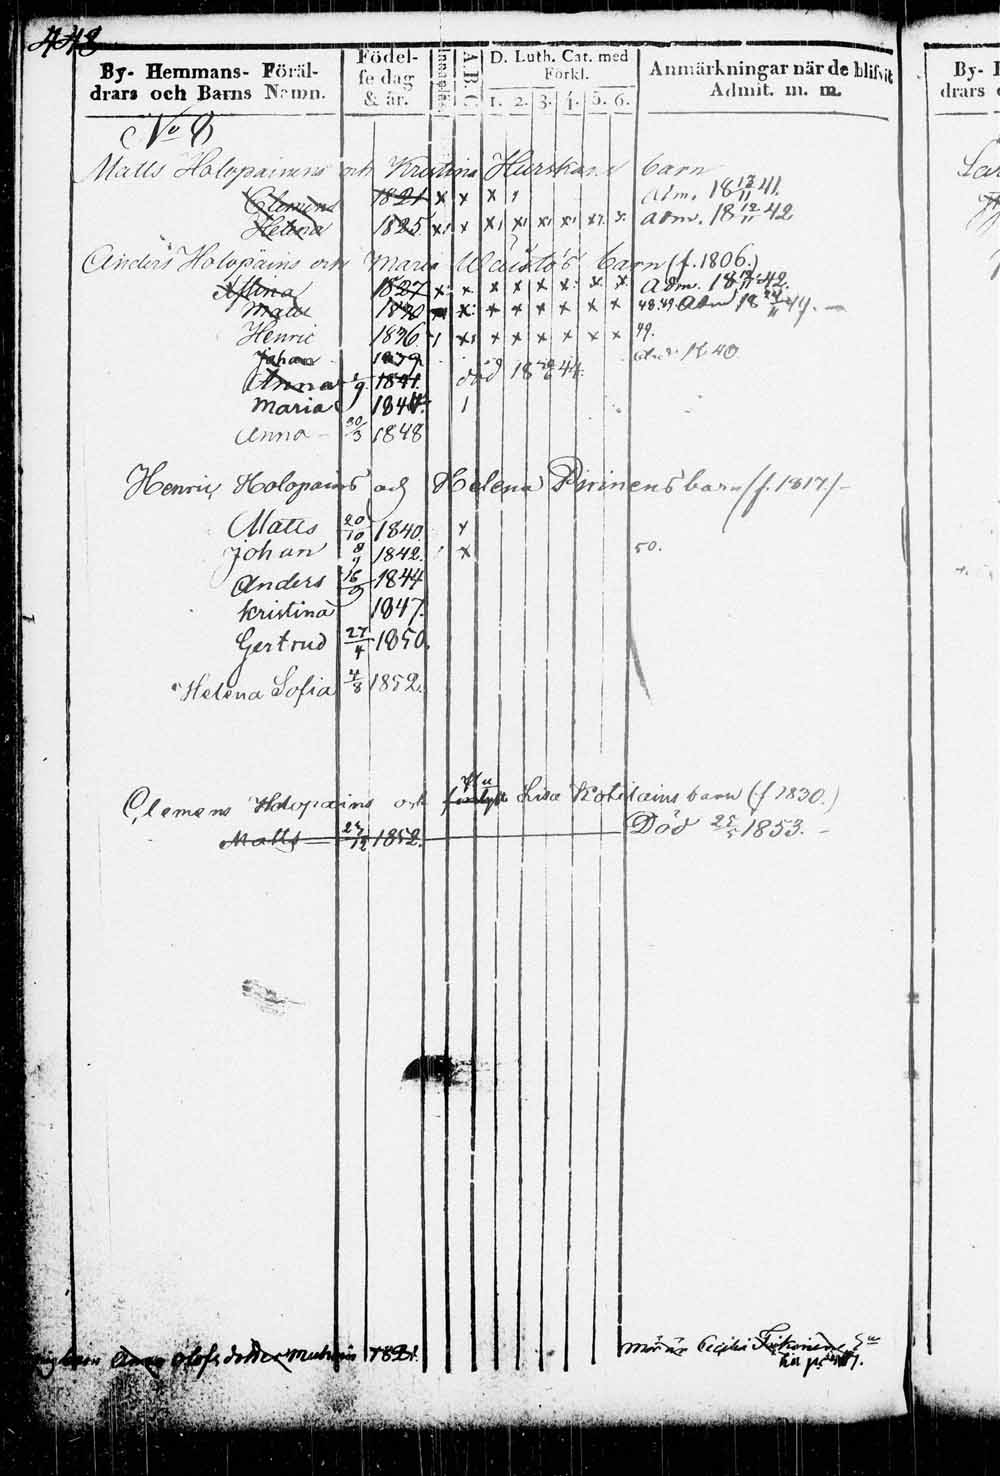 448
By- Hemmans- Föräl-
drars och Barns Namn.
Födel-
se dag
& år.
A B C
D. Luth. Cat. med
Förkl.
1. 2. 3. 4. 5. 6.
Anmärkningar när de blifvit
Admit. m. m.
By-
drars
No 8
Matts Holopainens och Kristina Hurskas barn
Clemens 1821 x x x Adm. 18 13/11 41.
Helena 1825 x x x x x x x x Adm. 18 12/11 42
Anders Holopains och Maria Wäistös barn (f. 1806.)
Stina 1827 x x x x x x x x Adm. 18 42.
Matts 1830 x x x x x x x 48.49. Adm 18 49.
Henric 1836 x x x x x x x 49.
Johan 1839
Anna 1841. död 18 44.
Maria 1844.
Anna 30/3 1848
Henric Holopains och Helena Pirinens barn (f. 1817.)
Matts 20/10 1840.
Johan 8/9 1842. x 50.
Anders 16/9 1844
Kristina 1847.
Gertrud 27/4 1850.
Helena Sofia 4/8 1852.
Clemens Holopains och Hu Lisa Kohilains barn (f 1830.)
Matts 1852. Död 1853.
Anna Olofsdotter 1821. Cecilia